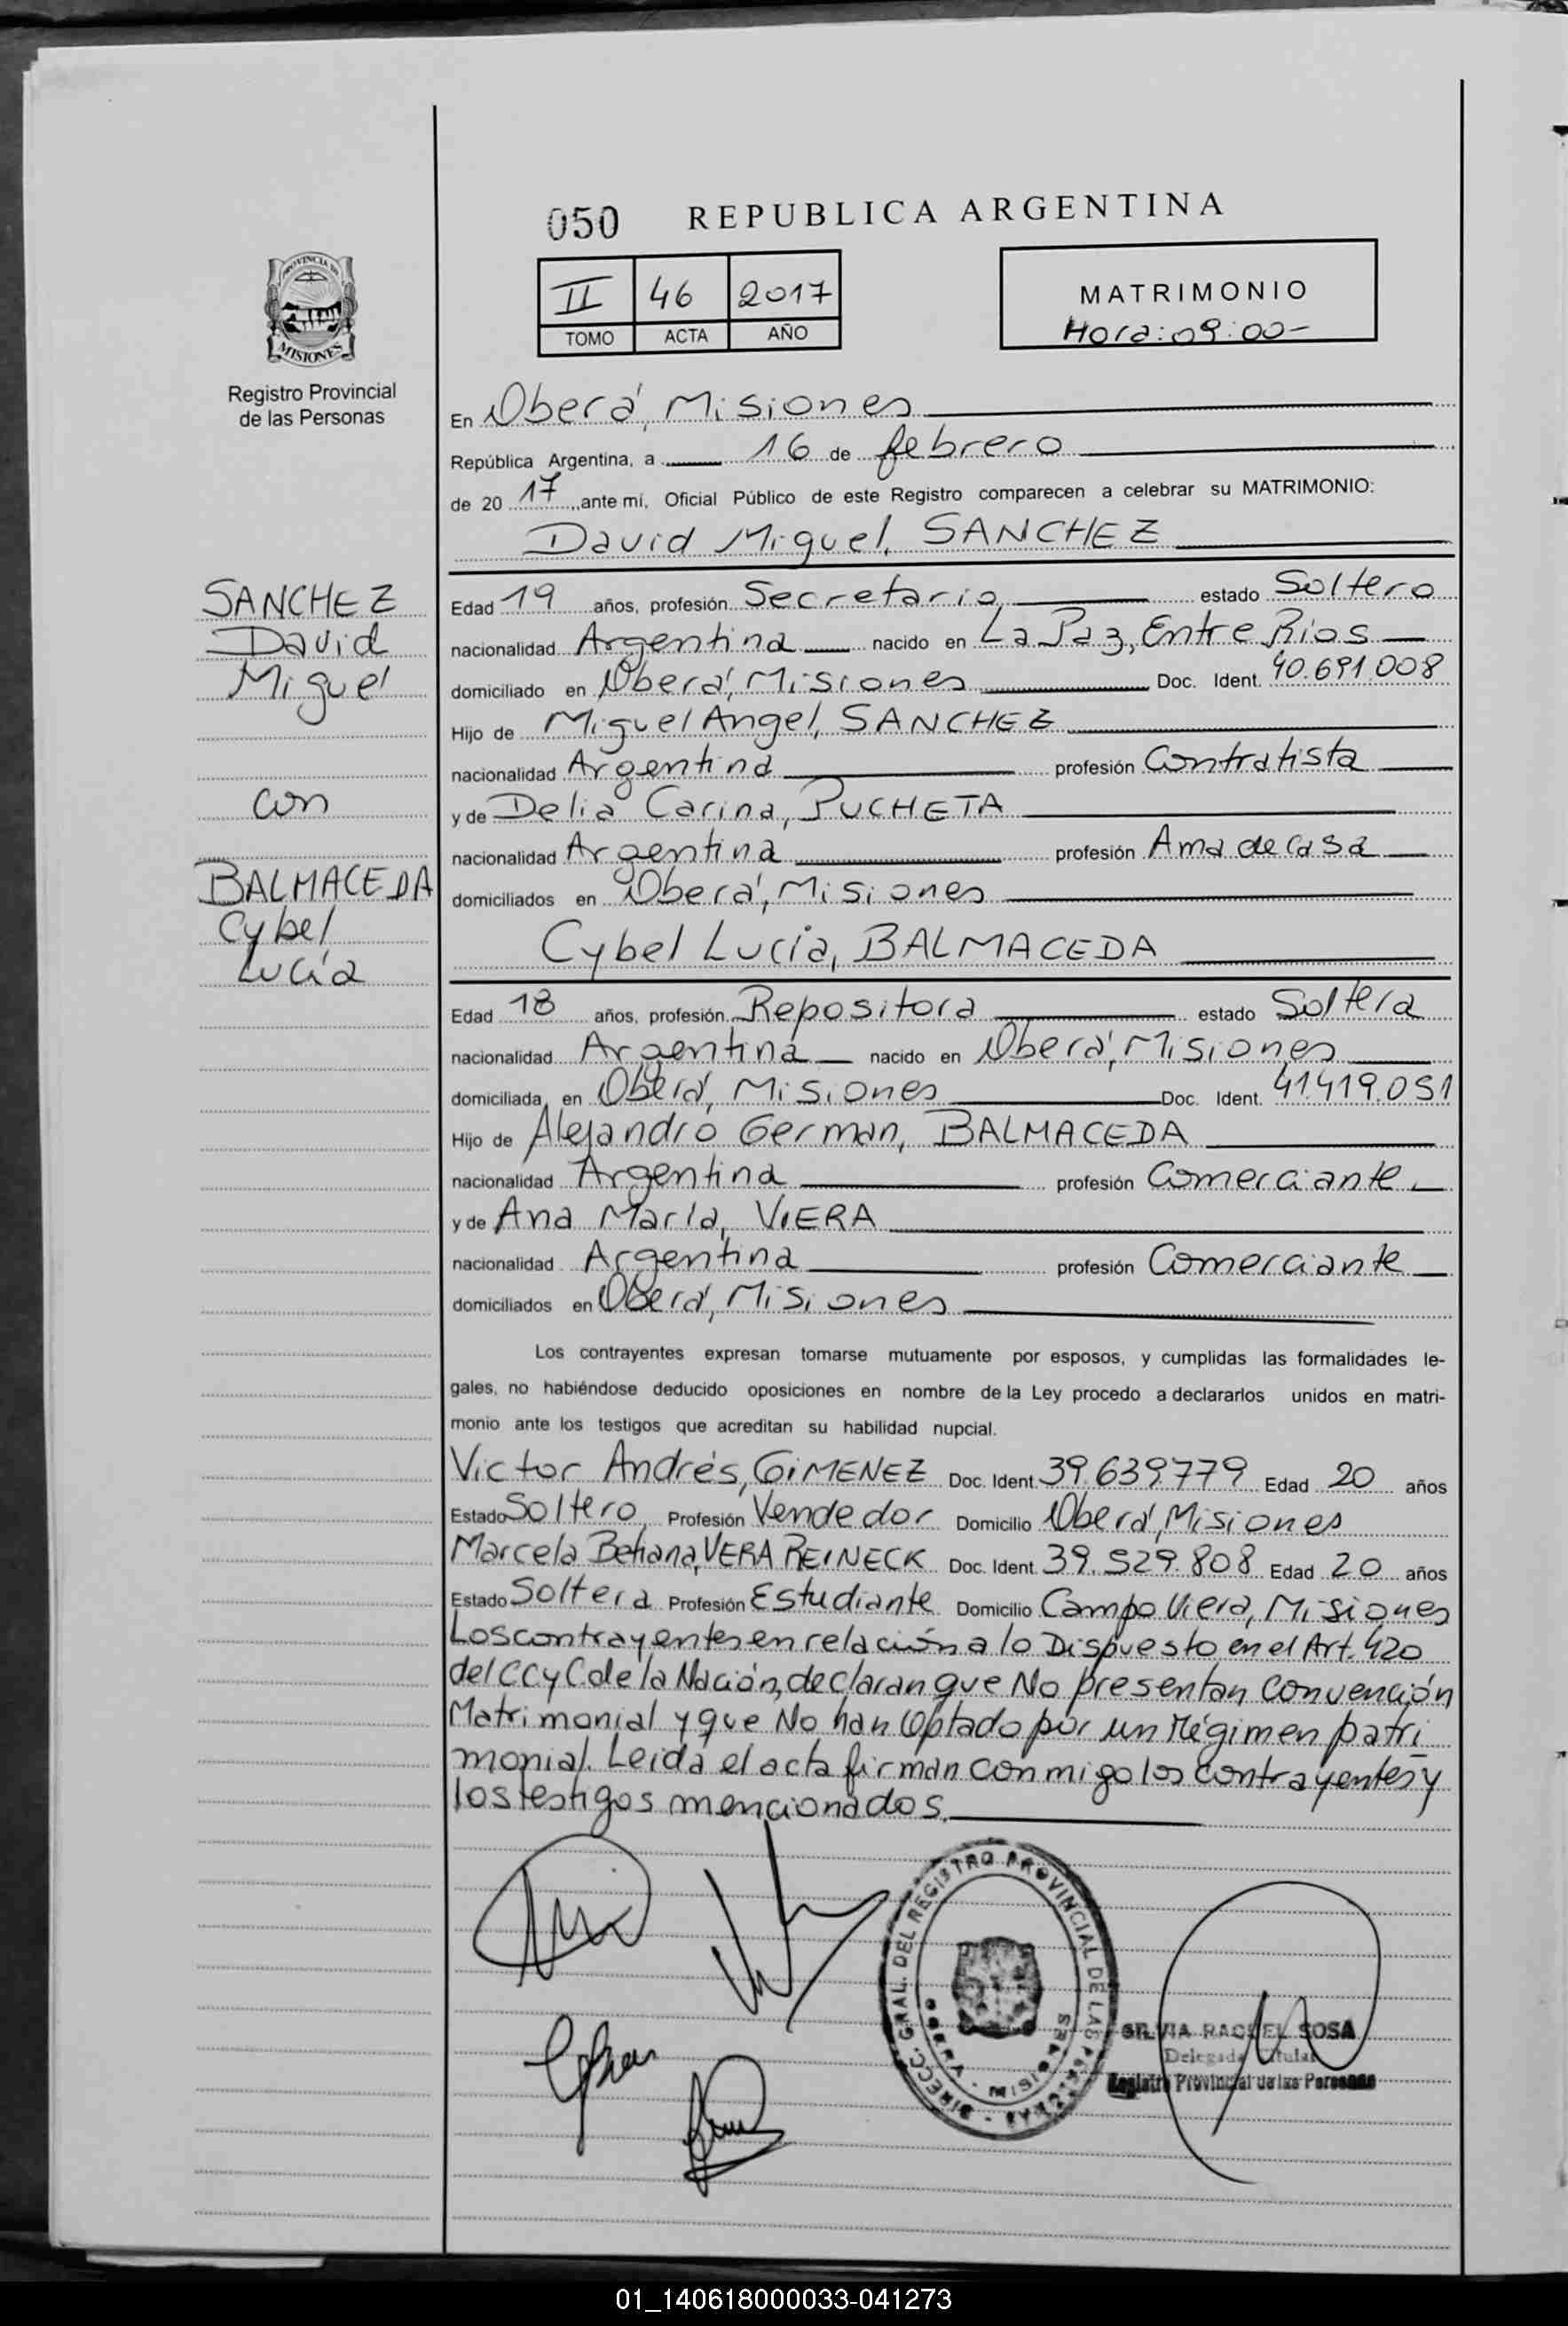 050 REPUBLICA ARGENTINA
PROVINCIA DE
MISIONES
Registro Provincial
de las Personas
II 46 2017
TOMO ACTA AÑO
MATRIMONIO
Hora: 09:00-
En Oberá, Misiones
República Argentina, a 16 de febrero
de 20 17 ante mí, Oficial Público de este Registro comparecen a celebrar su MATRIMONIO:
David Miguel, SANCHEZ
SANCHEZ
David
Miguel
con
BALMACEDA
Cybel
Lucía
Edad 19 años, profesión Secretario estado Soltero
nacionalidad Argentina nacido en La Paz, Entre Rios
domiciliado en Oberá, Misiones Doc. Ident. 40.691.008
Hijo de Miguel Angel, SANCHEZ
nacionalidad Argentina profesión Contratista
y de Delia Carina, PUCHETA
nacionalidad Argentina profesión Ama de casa
domiciliados en Oberá, Misiones
Cybel Lucía, BALMACEDA
Edad 18 años, profesión Repositora estado Soltera
nacionalidad Argentina nacido en Oberá, Misiones
domiciliada en Oberá, Misiones Doc. Ident. 41.419.051
Hijo de Alejandro German, BALMACEDA
nacionalidad Argentina profesión Comerciante
y de Ana María, VIERA
nacionalidad Argentina profesión Comerciante
domiciliados en Oberá, Misiones
Los contrayentes expresan tomarse mutuamente por esposos, y cumplidas las formalidades le-
gales, no habiéndose deducido oposiciones en nombre de la Ley procedo a declararlos unidos en matri-
monio ante los testigos que acreditan su habilidad nupcial.
Victor Andrés, GIMENEZ Doc. Ident. 39.639.779 Edad 20 años
Estado Soltero Profesión Vendedor Domicilio Oberá, Misiones
Marcela Betiana, VERA REINECK Doc. Ident. 39.529.808 Edad 20 años
Estado Soltera Profesión Estudiante Domicilio Campo Viera, Misiones
Los contrayentes en relación a lo Dispuesto en el Art. 420
del CCyC de la Nación, declaran que No presentan Convención
Matrimonial y que No han Optado por un Régimen patri
monial. Leida el acta firman conmigo los contrayentes y
los testigos mencionados.
DIRECC. GRAL. DEL REGISTRO PROVINCIAL DE LAS PERSONAS
OBERA - MISIONES
SILVIA RAQUEL SOSA
Delegada Titular
Registro Provincial de las Personas
01_140618000033-041273